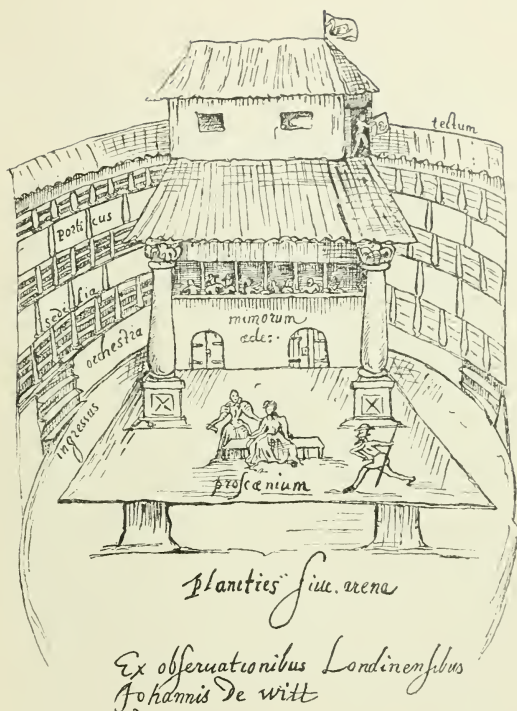 tectum
porticus
sedilia
orchestra
mimorum
ædes.
ingressus
proſcænium
planities ſiue. arena
Ex obſeruationibus Londinenſibus
Johannis De witt